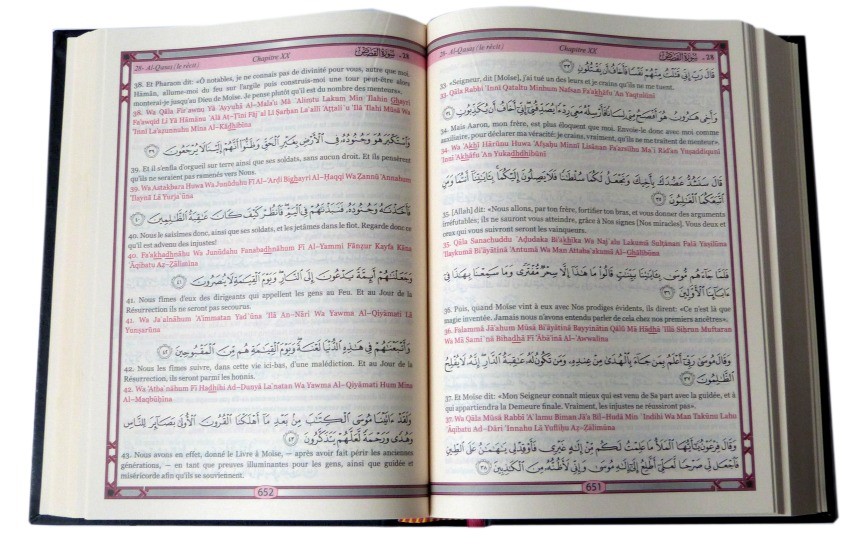 28- Al-Qasas (le récit)
Chapitre XX
سُورَةُ القَصَصِ - 28
قَالَ رَبِّ إِنِّي قَتَلْتُ مِنْهُمْ نَفْسًا فَأَخَافُ أَن يَقْتُلُونِ ٣٣
33. «Seigneur, dit [Moïse], j'ai tué un des leurs et je crains qu'ils ne me tuent.
33. Qāla Rabbi 'Innī Qataltu Minhum Nafsan Fa'akhāfu 'An Yaqtulūni
وَأَخِي هَـٰرُونُ هُوَ أَفْصَحُ مِنِّي لِسَانًا فَأَرْسِلْهُ مَعِيَ رِدْءًا يُصَدِّقُنِي إِنِّي أَخَافُ أَن يُكَذِّبُونِ ٣٤
34. Mais Aaron, mon frère, est plus éloquent que moi. Envoie-le donc avec moi comme
auxiliaire, pour déclarer ma véracité: je crains, vraiment, qu'ils ne me traitent de menteur».
34. Wa 'Akhī Hārūnu Huwa 'Afşaĥu Minnī Lisānan Fa'arsilhu Ma`ī Rid'an Yuşaddiqunī
'Innī 'Akhāfu 'An Yukadhdhibūni
قَالَ سَنَشُدُّ عَضُدَكَ بِأَخِيكَ وَنَجْعَلُ لَكُمَا سُلْطَـٰنًا فَلَا يَصِلُونَ إِلَيْكُمَا بِـَٔايَـٰتِنَا أَنتُمَا وَمَنِ
اتَّبَعَكُمَا الْغَـٰلِبُونَ ٣٥
35. [Allah] dit: «Nous allons, par ton frère, fortifier ton bras, et vous donner des arguments
irréfutables; ils ne sauront vous atteindre, grâce à Nos signes [Nos miracles]. Vous deux et
ceux qui vous suivront seront les vainqueurs.
35. Qāla Sanashuddu `Ađudaka Bi'akhīka Wa Naj`alu Lakumā Sulţānan Falā Yaşilūna
'Ilaykumā Bi'āyātinā 'Antumā Wa Man Attaba`akumā Al-Ghālibūna
فَلَمَّا جَاءَهُم مُّوسَىٰ بِـَٔايَـٰتِنَا بَيِّنَـٰتٍ قَالُوا مَا هَـٰذَا إِلَّا سِحْرٌ مُّفْتَرًى وَمَا سَمِعْنَا بِهَـٰذَا فِي
ءَابَائِنَا الْأَوَّلِينَ ٣٦
36. Puis, quand Moïse vint à eux avec Nos prodiges évidents, ils dirent: «Ce n'est là que
magie inventée. Jamais nous n'avons entendu parler de cela chez nos premiers ancêtres».
36. Falammā Jā'ahum Mūsá Bi'āyātinā Bayyinātin Qālū Mā Hādhā 'Illā Siĥrun Muftaran
Wa Mā Sami`nā Bihadhā Fī 'Ābā'inā Al-'Awwalīna
وَقَالَ مُوسَىٰ رَبِّي أَعْلَمُ بِمَن جَاءَ بِالْهُدَىٰ مِنْ عِندِهِ وَمَن تَكُونُ لَهُ عَـٰقِبَةُ الدَّارِ إِنَّهُ لَا يُفْلِحُ
الظَّـٰلِمُونَ ٣٧
37. Et Moïse dit: «Mon Seigneur connaît mieux qui est venu de Sa part avec la guidée, et à
qui appartiendra la Demeure finale. Vraiment, les injustes ne réussiront pas».
37. Wa Qāla Mūsá Rabbī 'A`lamu Biman Jā'a Bil-Hudá Min `Indihi Wa Man Takūnu Lahu
`Āqibatu Ad-Dāri 'Innahu Lā Yufliĥu Až-Žālimūna
وَقَالَ فِرْعَوْنُ يَـٰأَيُّهَا الْمَلَأُ مَا عَلِمْتُ لَكُم مِّنْ إِلَـٰهٍ غَيْرِي فَأَوْقِدْ لِي يَـٰهَـٰمَـٰنُ عَلَى الطِّينِ
فَاجْعَل لِّي صَرْحًا لَّعَلِّي أَطَّلِعُ إِلَىٰ إِلَـٰهِ مُوسَىٰ وَإِنِّي لَأَظُنُّهُ مِنَ الْكَـٰذِبِينَ ٣٨
651
28- Al-Qasas (le récit)
Chapitre XX
سُورَةُ القَصَصِ - 28
38. Et Pharaon dit: «Ô notables, je ne connais pas de divinité pour vous, autre que moi.
Hāmān, allume-moi du feu sur l'argile puis construis-moi une tour peut-être alors
monterai-je jusqu'au Dieu de Moïse. Je pense plutôt qu'il est du nombre des menteurs».
38. Wa Qāla Fir`awnu Yā 'Ayyuhā Al-Mala'u Mā `Alimtu Lakum Min 'Ilahin Ghayrī
Fa'awqid Lī Yā Hāmānu `Alá Aţ-Ţīni Fāj`al Lī Şarĥan La`allī 'Aţţali`u 'Ilá 'Ilahi Mūsá Wa
'Innī La'ažunnuhu Mina Al-Kādhibīna
وَاسْتَكْبَرَ هُوَ وَجُنُودُهُ فِي الْأَرْضِ بِغَيْرِ الْحَقِّ وَظَنُّوا أَنَّهُمْ إِلَيْنَا لَا يُرْجَعُونَ ٣٩
39. Et il s'enfla d'orgueil sur terre ainsi que ses soldats, sans aucun droit. Et ils pensèrent
qu'ils ne seraient pas ramenés vers Nous.
39. Wa Astakbara Huwa Wa Junūduhu Fī Al-'Arđi Bighayri Al-Ĥaqqi Wa Žannū 'Annahum
'Ilaynā Lā Yurja`ūna
فَأَخَذْنَـٰهُ وَجُنُودَهُ فَنَبَذْنَـٰهُمْ فِي الْيَمِّ فَانظُرْ كَيْفَ كَانَ عَـٰقِبَةُ الظَّـٰلِمِينَ ٤٠
40. Nous le saisîmes donc, ainsi que ses soldats, et les jetâmes dans le flot. Regarde donc ce
qu'il est advenu des injustes!
40. Fa'akhadhnāhu Wa Junūdahu Fanabadhnāhum Fī Al-Yammi Fānžur Kayfa Kāna
`Āqibatu Až-Žālimīna
وَجَعَلْنَـٰهُمْ أَئِمَّةً يَدْعُونَ إِلَى النَّارِ وَيَوْمَ الْقِيَـٰمَةِ لَا يُنصَرُونَ ٤١
41. Nous fîmes d'eux des dirigeants qui appellent les gens au Feu. Et au Jour de la
Résurrection ils ne seront pas secourus.
41. Wa Ja`alnāhum 'A'immatan Yad`ūna 'Ilá An-Nāri Wa Yawma Al-Qiyāmati Lā
Yunşarūna
وَأَتْبَعْنَـٰهُمْ فِي هَـٰذِهِ الدُّنْيَا لَعْنَةً وَيَوْمَ الْقِيَـٰمَةِ هُم مِّنَ الْمَقْبُوحِينَ ٤٢
42. Nous les fîmes suivre, dans cette vie ici-bas, d'une malédiction. Et au Jour de la
Résurrection, ils seront parmi les honnis.
42. Wa 'Atba`nāhum Fī Hadhihi Ad-Dunyā La`natan Wa Yawma Al-Qiyāmati Hum Mina
Al-Maqbūĥīna
وَلَقَدْ ءَاتَيْنَا مُوسَى الْكِتَـٰبَ مِن بَعْدِ مَا أَهْلَكْنَا الْقُرُونَ الْأُولَىٰ بَصَائِرَ لِلنَّاسِ
وَهُدًى وَرَحْمَةً لَّعَلَّهُمْ يَتَذَكَّرُونَ ٤٣
43. Nous avons en effet, donné le Livre à Moïse, – après avoir fait périr les anciennes
générations, – en tant que preuves illuminantes pour les gens, ainsi que guidée et
miséricorde afin qu'ils se souviennent.
652